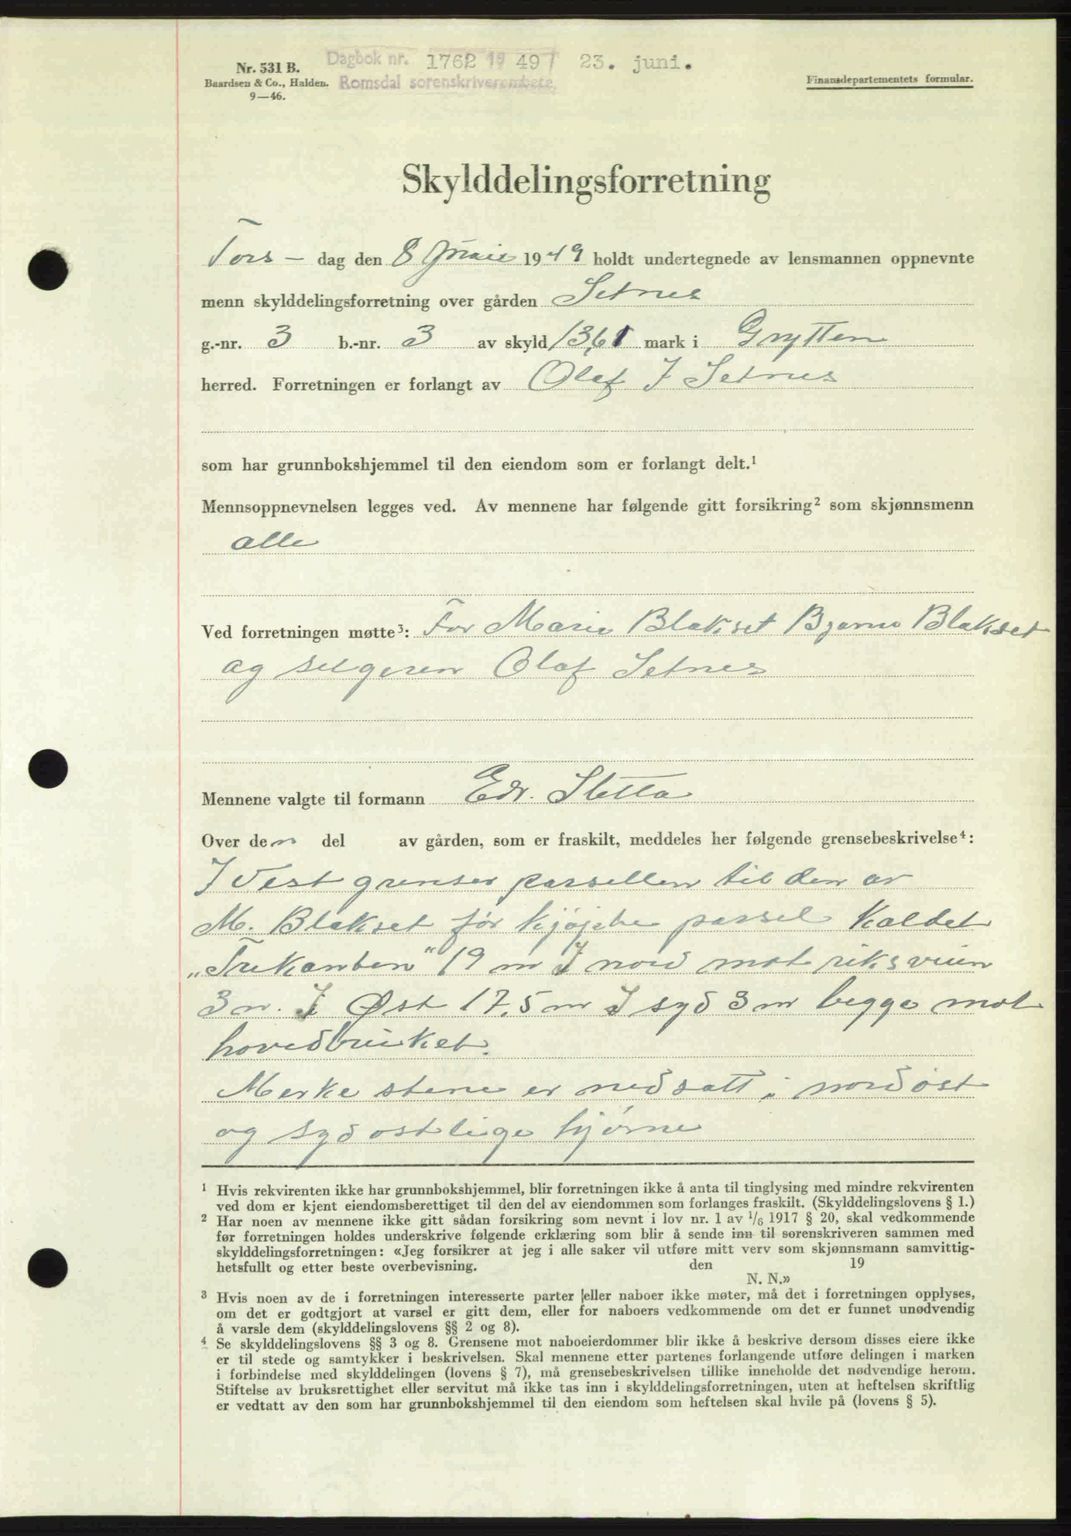 Nr. 531 B.
Baardsen & Co., Halden.
9—46.
Dagbok nr. 1762 1949 23. juni.
Romsdal sorenskriverembete
Finansdepartementets formular.
Skylddelingsforretning
Tors- dag den 8 1949 holdt undertegnede av lensmannen oppnevnte
menn skylddelingsforretning over gården Setnes
g.-nr. 3 b.-nr. 3 av skyld 13,61 mark i Grytten
herred. Forretningen er forlangt av Olaf J Setnes
som har grunnbokshjemmel til den eiendom som er forlangt delt.¹
Mennsoppnevnelsen legges ved. Av mennene har følgende gitt forsikring² som skjønnsmenn
alle
Ved forretningen møtte³: For Marie Blakset Bjarne Blakset
og selgeren Olaf Setnes
Mennene valgte til formann Edv. Sletta
Over den del av gården, som er fraskilt, meddeles her følgende grensebeskrivelse⁴:
I Vest grenser parsellen til den av
M. Blakset før kjøpte parsel kaldet
„Trekanten" 19 m I nord mot riksveien
3 m. I Øst 17,5 m I syd 3 m begge mot
hovedbruket.
Merke stene er nedsatt i nordøst
og sydostlige hjørne
¹ Hvis rekvirenten ikke har grunnbokshjemmel, blir forretningen ikke å anta til tinglysing med mindre rekvirenten
ved dom er kjent eiendomsberettiget til den del av eiendommen som forlanges fraskilt. (Skylddelingslovens § 1.)
² Har noen av mennene ikke gitt sådan forsikring som nevnt i lov nr. 1 av 1/6 1917 § 20, skal vedkommende
før forretningen holdes underskrive følgende erklæring som blir å sende inn til sorenskriveren sammen med
skylddelingsforretningen: «Jeg forsikrer at jeg i alle saker vil utføre mitt verv som skjønnsmann samvittig-
hetsfullt og etter beste overbevisning. den 19
N. N.»
³ Hvis noen av de i forretningen interesserte parter eller naboer ikke møter, må det i forretningen opplyses,
om det er godtgjort at varsel er gitt dem, eller for naboers vedkommende om det er funnet unødvendig
å varsle dem (skylddelingslovens §§ 2 og 8).
⁴ Se skylddelingslovens §§ 3 og 8. Grensene mot naboeierdommer blir ikke å beskrive dersom disses eiere ikke
er til stede og samtykker i beskrivelsen. Skal mennene etter partenes forlangende utføre delingen i marken
i forbindelse med skylddelingen (lovens § 7), må grensebeskrivelsen tillike inneholde det nødvendige herom.
Stiftelse av bruksrettighet eller servitut må ikke tas inn i skylddelingsforretningen, uten at heftelsen skriftlig
er vedtatt av den som har grunnbokshjemmel til den eiendom som heftelsen skal hvile på (lovens § 5).